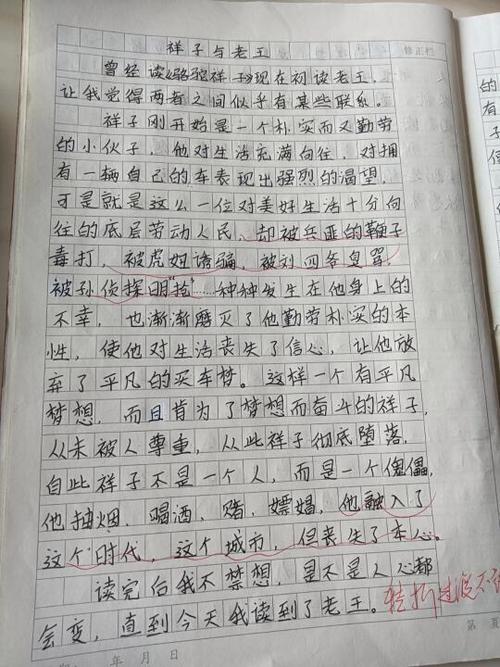 祥子与老王
修正栏
曾经读《骆驼祥子》现在初读老王，
让我觉得两者之间似乎有某些联系。
祥子刚开始是一个朴实而又勤劳
的小伙子，他对生活充满向往，对拥
有一辆自己的车表现出强烈的渴望，
可是就是这么一位对美好生活十分向
往的底层劳动人民，却被兵匪的鞭子
毒打，被虎妞诱骗，被刘四爷臭骂，
被孙侦探明"抢"……种种发生在他身上的
不幸，也渐渐磨灭了他勤劳朴实的本
性，使他对生活丧失了信心，让他放
弃了平凡的买车梦。这样一个有平凡
梦想，而且肯为了梦想而奋斗的祥子，
从未被人尊重，从此祥子彻底堕落，
自此祥子不是一个人，而是一个傀儡，
他抽烟、喝酒、赌、嫖娼，他融入了
这个时代，这个城市，但丧失了本心。
读完后我不禁想，是不是人心都
会变，直到今天我读到了老王。
转折过渡不
年 月 日
第 页